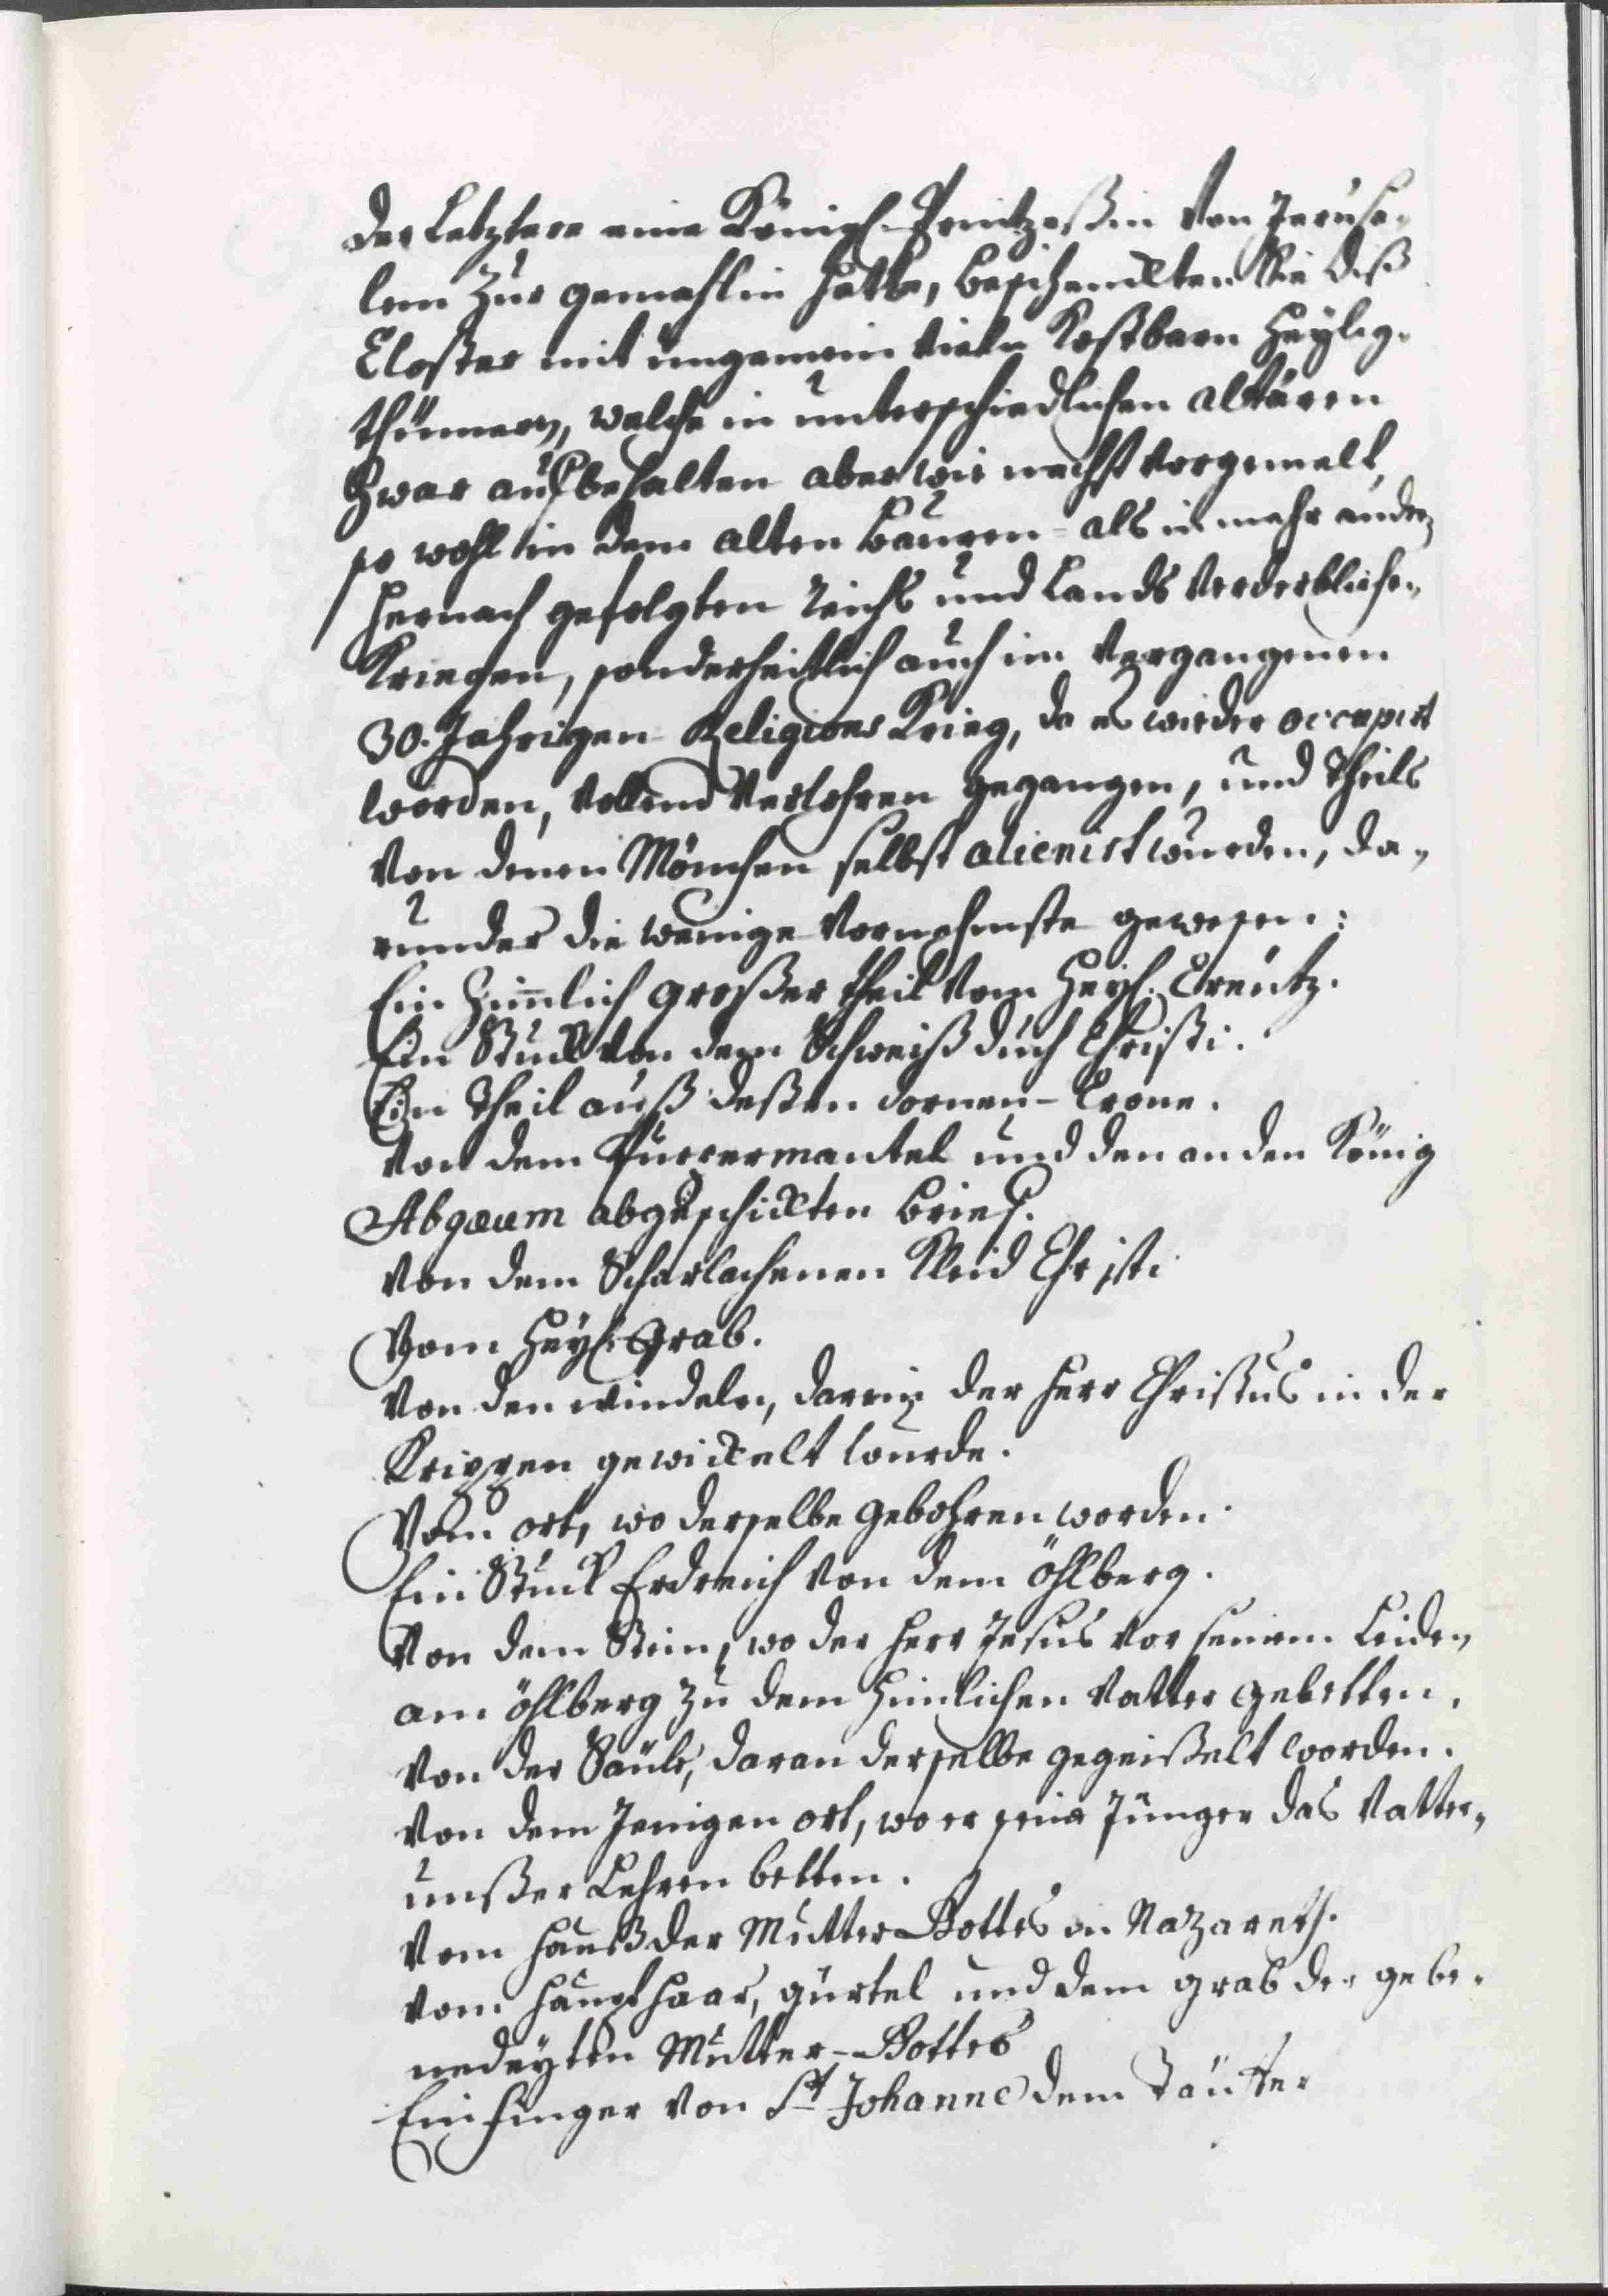 der Letztere eine Königl. Printzeßin von Jerusa-
lem zur gemahlin hatte, beschenckten Sie diß
Closter mit ungemein vieln Kostbarn Heylig-
thümmern, welche in unterschiedlichen altären
Zwar aufbehalten aber wie nechst vorgemelt,
so wohl in dem alten Bauren- als in mehr andern
hernach gefolgten Reichs und Lands Verderbliche-
Kriegen, sonderheitlich auch im Vergangenen
30. Jahrigen Religions Krieg, da es wieder occupirt
worden, vollend verlohren gegangen, und theils
von denen Mönchen selbst alienirt wurden, da-
runder die wenige Vornehmste gewesen:
Ein Zimlich großer theil vom Heyl. Creutz.
Ein Stuck von dem Schweiß duch Christi.
Ein Theil auß deßen dornen-Crone.
Von dem Purpermantel und den an den König
Abgarum abgeschickten brief.
Von dem Scharlachenen Kleid Christi
Vom Heyl. Grab.
Von den windeln, darein der Herr Christus in der
Krippen gewickelt wurde.
Vom ort, wo derselbe gebohren worden.
Ein Stuck Erdreich von dem öhlberg.
Von dem Stein, wo der Herr Jesus vor seinem Leiden
am öhlberg zu dem himlichen Vatter gebetten.
Von der Säule, daran derselbe gegeißelt worden.
Von dem Jenigen ort, wo er seine Jünger das Vatter-
unßer Lehren betten.
Vom Hauß der Mutter Gottes in Nazareth.
vom haupthaar, gürtel und dem grab der gebe-
nedeyten Mutter-Gottes
Ein finger von St Johanne dem Täuffer